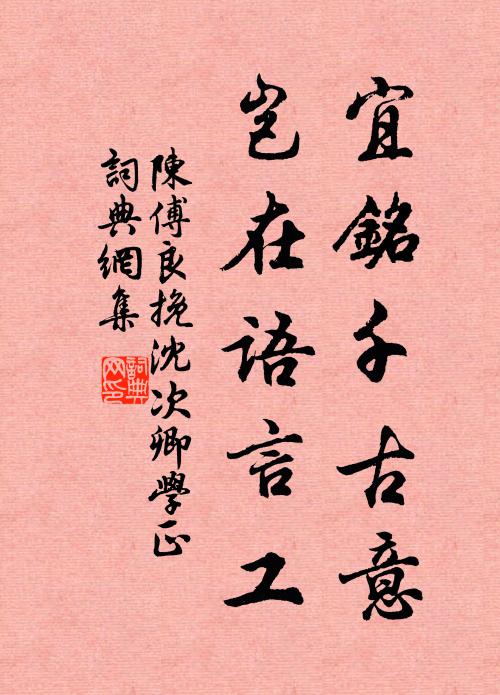 宜銘千古意
豈在語言工
陳傅良挽沈次卿學正
詞典網集
詞典網印